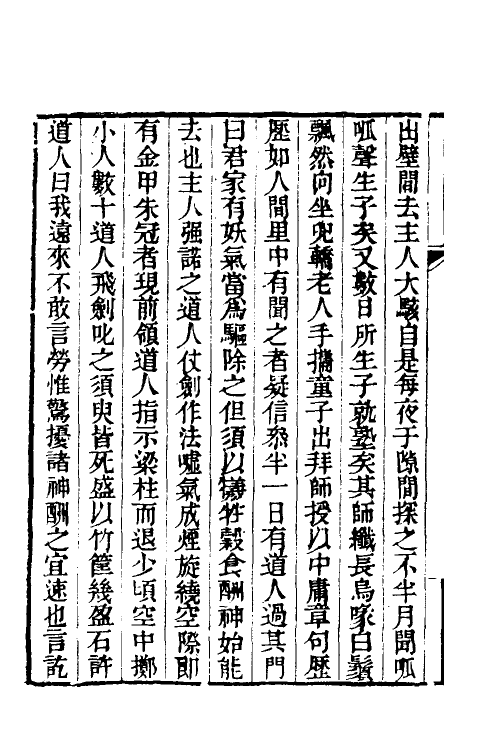 出壁間去主人大駭自是每夜于隙間探之不半月聞呱
呱聲生子矣又數日所生子就塾矣其師纖長烏喙白鬚
飄然向坐兜轎老人手攜童子出拜師授以中庸章句歷
歷如人間里中有聞之者疑信叅半一日有道人過其門
曰君家有妖氣當爲驅除之但須以犧牲穀食酬神始能
去也主人强諾之道人仗劍作法噓氣成煙旋繞空際即
有金甲朱冠者現前領道人指示梁柱而退少頃空中擲
小人數十道人飛劍叱之須臾皆死盛以竹筐幾盈石許
道人曰我遠來不敢言勞惟驚擾諸神酬之宜速也言訖